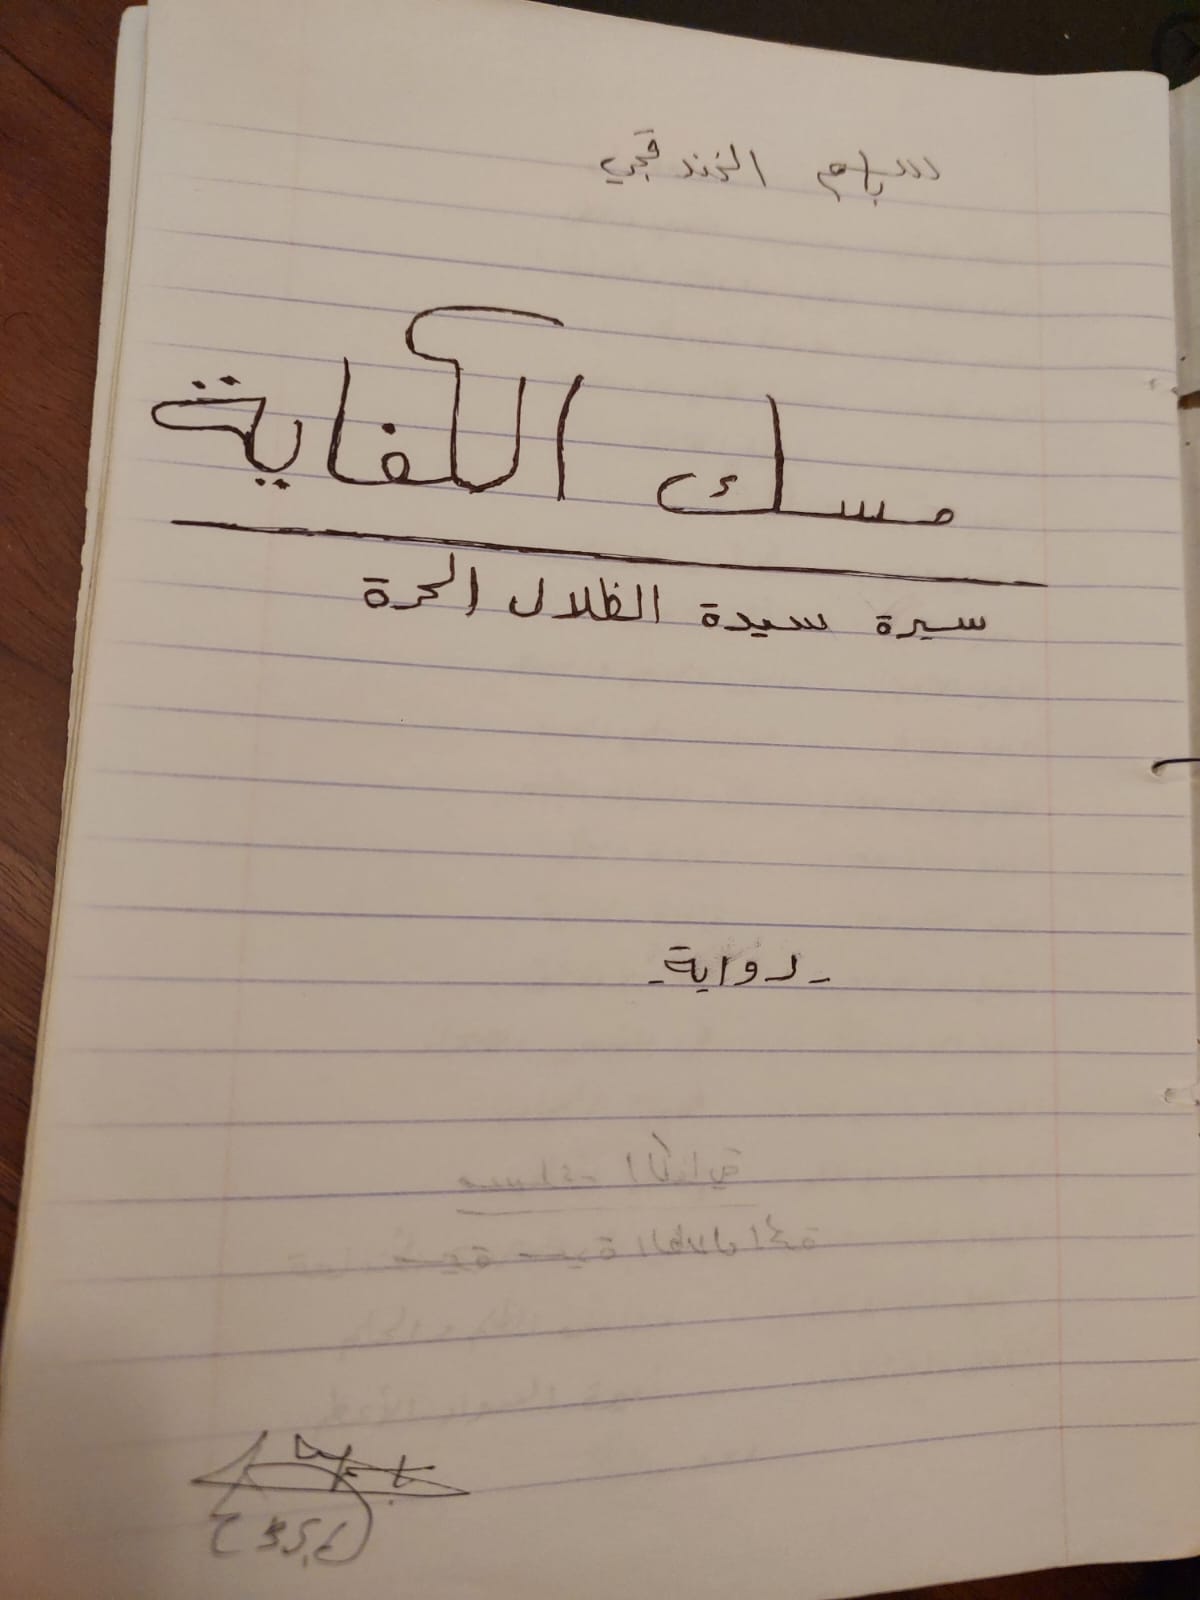 باسم الخندقجي
مسك الكفاية
سيرة سيدة الظلال الحرة
- رواية -